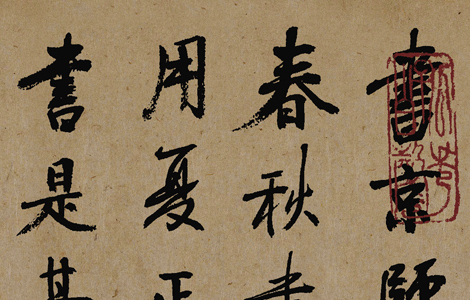 書京師
春秋書
用夏正
書是其